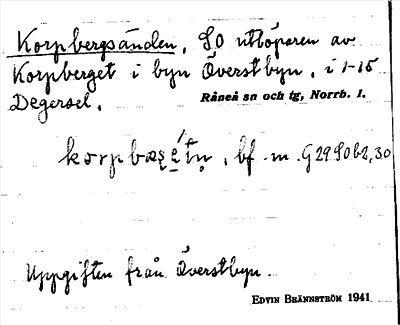 Korpbergsänden, SO utlöparen av
Korpberget i byn Överstbyn, i 1-15
Degersel.
Råneå sn och tg, Norrb. l.
bf. m. G29S0b2,30
Uppgiften från Överstbyn.
EDVIN BRÄNNSTRÖM 1941